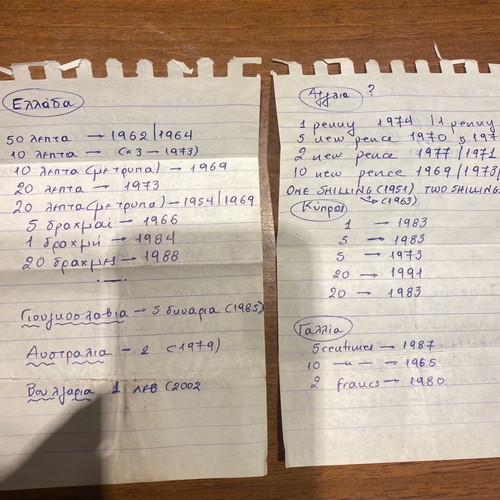 Ελλάδα
50 λεπτα → 1962/1964
10 λεπτα → (×3 → 1973)
10 λεπτα (με τρυπα) → 1969
20 λεπτα → 1973
20 λεπτα (με τρυπα) → 1954/1969
5 δραχμαί → 1966
1 δραχμή → 1984
20 δραχμες → 1988
Γιουγκοσλαβια → 5 δυναρια (1985)
Αυστραλια - 2 (1979)
Βουλγαρια 1 λεβ (2002
Αγγλια ?
1 penny 1974 | 1 penny
5 new pence 1970 197
2 new pence 1977/1971
10 new pence 1969/1973/
ONE SHILLING (1951) TWO SHILLING
→ (1963)
Κύπρος
1 → 1983
5 → 1983
5 → 1973
20 → 1991
20 → 1983
Γαλλία
5 centimes → 1987
10 —〃— → 1965
2 francs → 1980